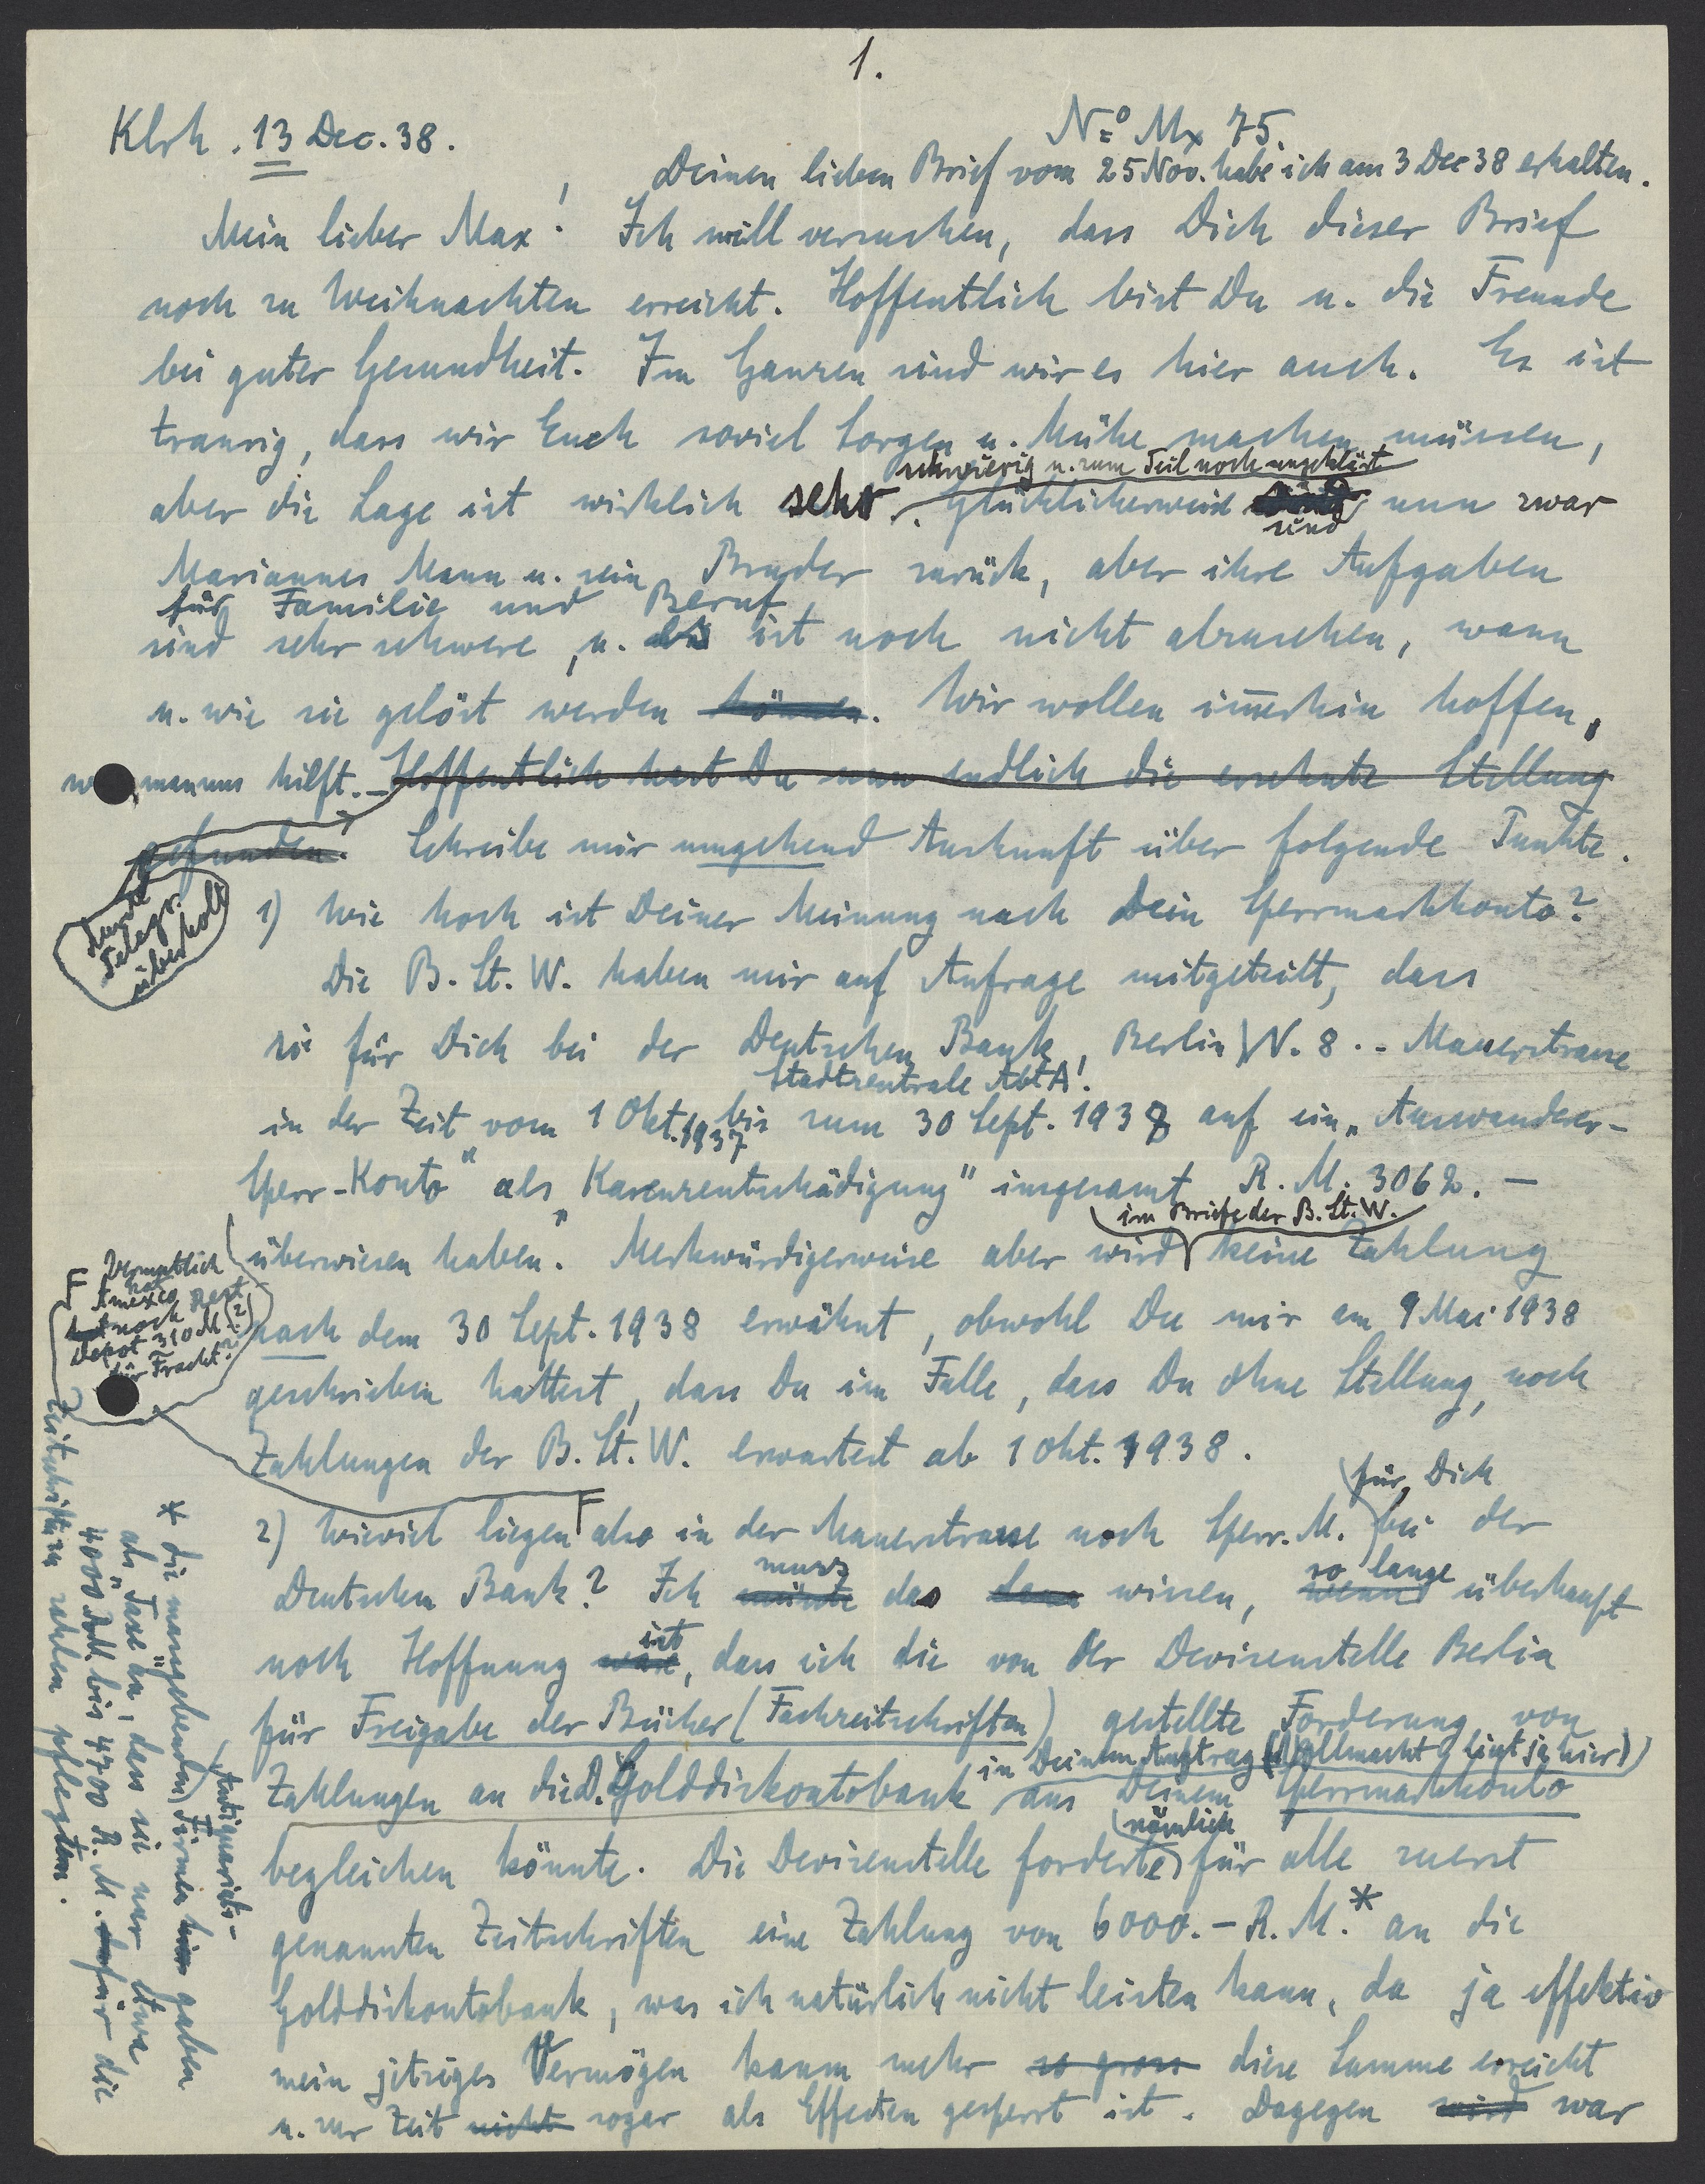 1.
Klrh. 13 Dec. 38.
No Mx 75.
Deinen lieben Brief vom 25 Nov. habe ich am 3 Dec 38 erhalten.
Mein lieber Max! Ich will versuchen, dass Dich dieser Brief
noch zu Weihnachten erreicht. Hoffentlich bist Du u. die Freunde
bei guter Gesundheit. Im Ganzen sind wir es hier auch. Es ist
traurig, dass wir Euch soviel Sorgen u. Mühe machen müssen,
schwierig u. zum Teil noch ungeklärt
aber die Lage ist wirklich sehr. Glücklicherweise sind nun zwar
Mariannes Mann u. sein Bruder zurück, aber ihre Aufgaben
für Familie und Beruf
sind sehr schwere, u. es ist noch nicht abzusehen, wann
u. wie sie gelöst werden können. Wir wollen im̅erhin hoffen,
man uns hilft. – Hoffentlich hast Du nun endlich die ersehnte Stellung
gefunden. Schreibe mir umgehend Auskunft über folgende Punkte.
durch
Telegr.
überholt
1) Wie hoch ist Deiner Meinung nach Dein Sperrmarkkonto?
Die B. St. W. haben mir auf Anfrage mitgeteilt, dass
sie für Dich bei der Deutschen Bank, Berlin W. 8 .. Mauerstrasse
Stadtzentrale Abt A!
in der Zeit vom 1 Okt. 1937 bis zum 30 Sept. 1938 auf ein „Auswanderer-
Sperr-Konto" als „Karenzentschädigung" insgesamt R. M. 3062. –
im Briefe der B. St. W.
überwiesen haben. Merkwürdigerweise aber wird keine Zahlung
nach dem 30 Sept. 1938 erwähnt, obwohl Du mir am 9 Mai 1938
geschrieben hattest, dass Du im Falle, dass Du ohne Stellung, noch
Zahlungen der B. St. W. erwartest ab 1 Okt. 1938.
F Vermutlich
hat
Amexco Rest
hat noch
Depot 310 M (?)
für Fracht?
für Dich
2) Wieviel liegen F also in der Mauerstrasse noch Sperr. M. bei der
Deutschen Bank? Ich muss das wissen, so lange überhaupt
noch Hoffnung wäre ist, dass ich die von der Devisenstelle Berlin
für Freigabe der Bücher (Fachzeitschriften) gestellte Forderung von
in Deinem Auftrag (Vollmacht liegt ja hier)
Zahlungen an die D. Golddiskontobank aus Deinem Sperrmarkkonto
begleichen könnte. Die Devisenstelle forderte nämlich für alle zuerst
genannten Zeitschriften eine Zahlung von 6000. – R. M.* an die
Golddiskontobank, was ich natürlich nicht leisten kann, da ja effektiv
mein jetziges Vermögen kaum mehr so gross diese Summe erreicht
u. zur Zeit nicht sogar als Effecten gesperrt ist. Dagegen wird war
* die massgebenden Antiquariats-
Firmen gaben
als Taxe an, dass sie nur etwa
4000 RM. bis 4700 R. M. dafür die
Zeitschriften zahlen pflegten.